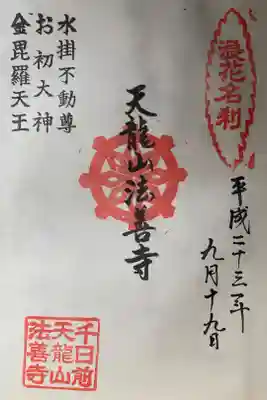 浪花名刹
平成二十三年
九月十九日
天龍山法善寺
水掛不動尊
お初大神
金毘羅天王
千日前
天龍山
法善寺